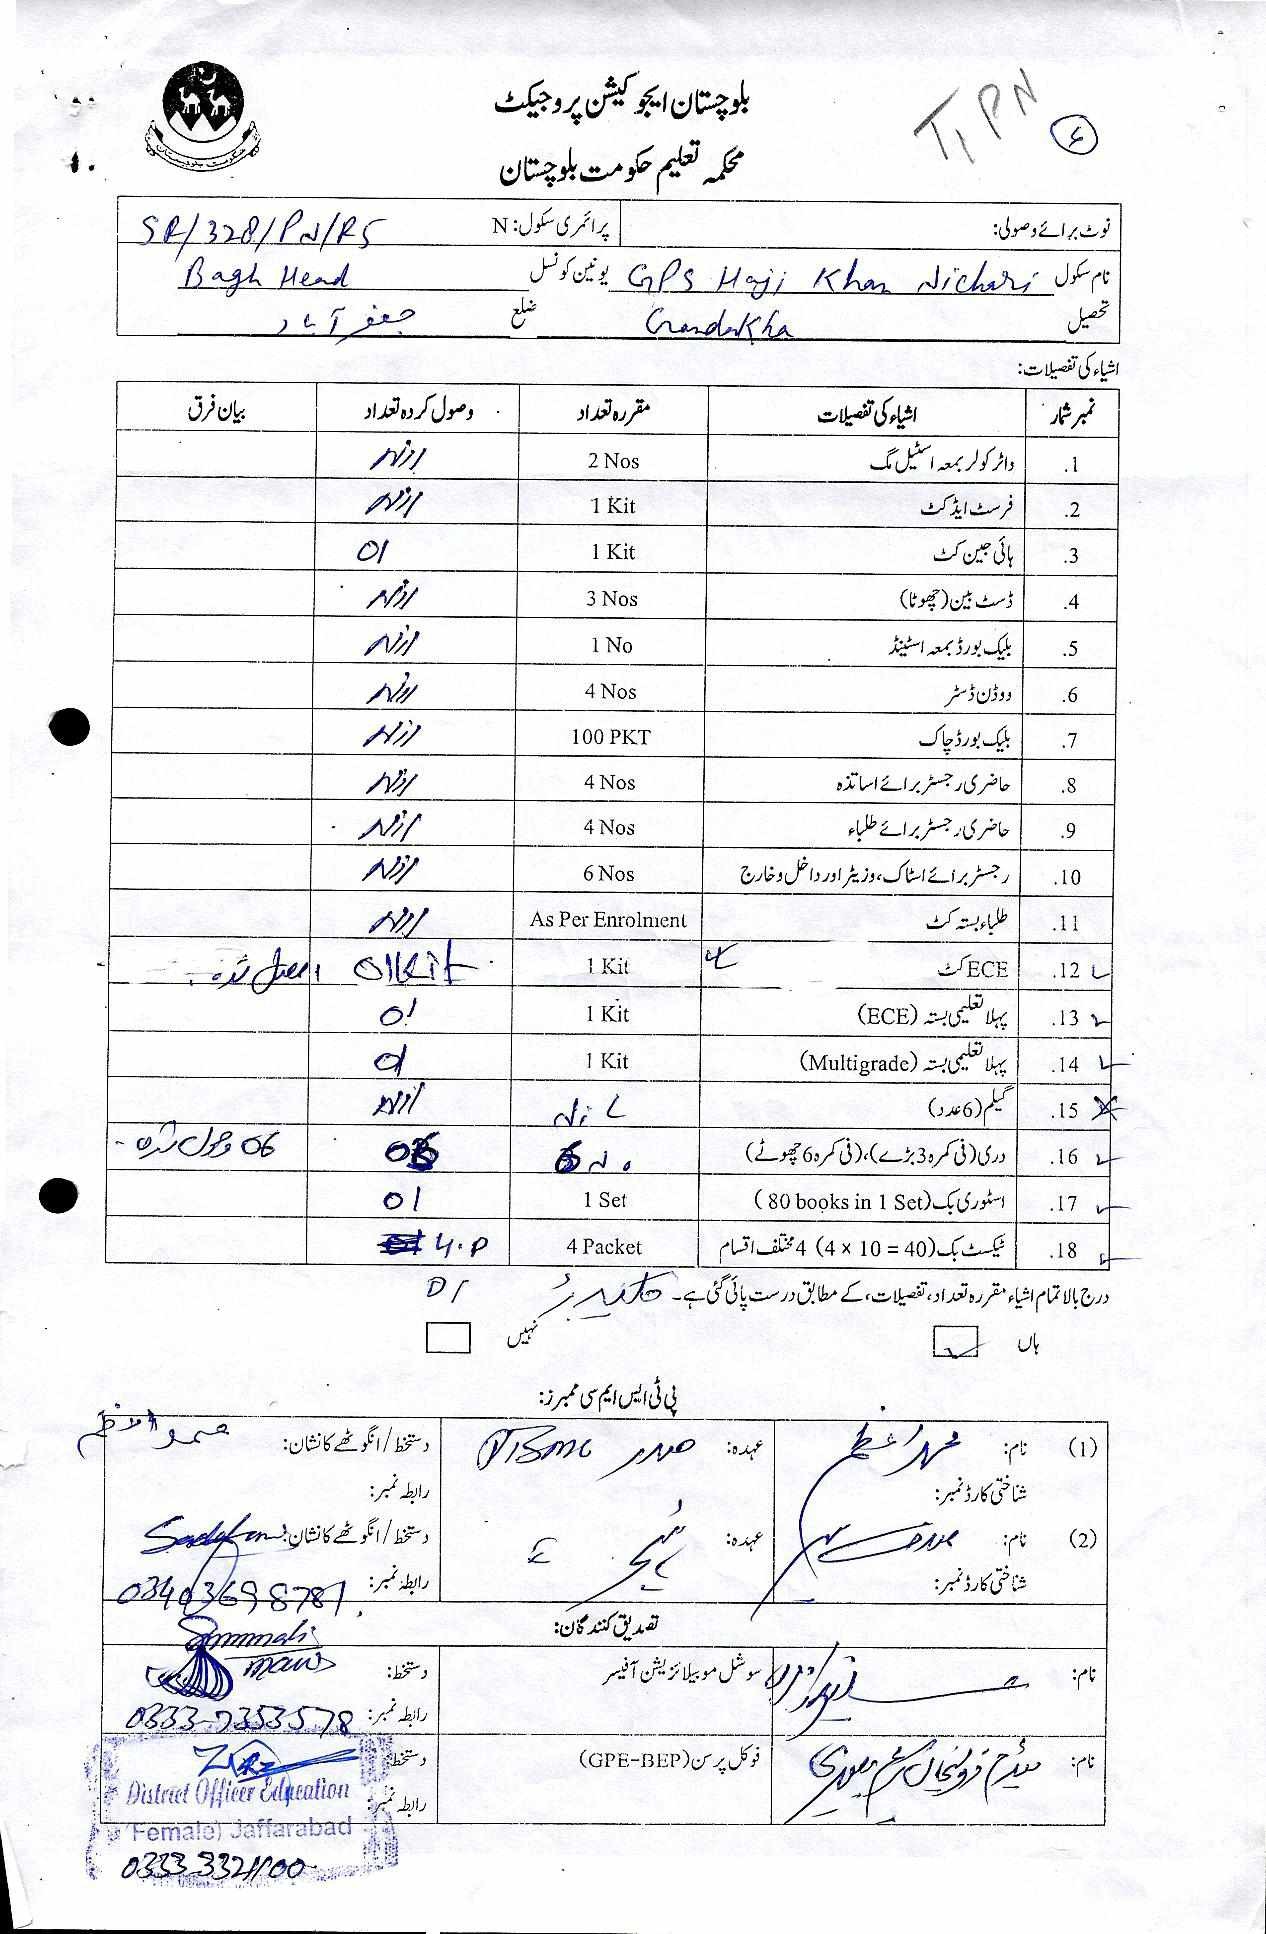 بلوچستان ایجوکیشن پروجیکٹ
T, PN
محکمہ تعلیم حکومت بلوچستان
نوٹ برائے وصولی: پرائمری سکول: N SR/328/PN/RS
نام سکول GPS Haji Khan Nichari یونین کونسل Bagh Head
تحصیل Gandakha ضلع جعفر آباد
اشیاء کی تفصیلات:
نمبر شمار اشیاء کی تفصیلات مقررہ تعداد وصول کردہ تعداد بیان فرق
1. واٹر کولر بمعہ اسٹیل مگ 2 Nos Nil
2. فرسٹ ایڈ کٹ 1 Kit Nil
3. ہائی جین کٹ 1 Kit 01
4. ڈسٹ بین (چھوٹا) 3 Nos Nil
5. بلیک بورڈ بمعہ اسٹینڈ 1 No Nil
6. ووڈن ڈسٹر 4 Nos Nil
7. بلیک بورڈ چاک 100 PKT Nil
8. حاضری رجسٹر برائے اساتذہ 4 Nos Nil
9. حاضری رجسٹر برائے طلباء 4 Nos Nil
10. رجسٹر برائے اسٹاک، وزیٹر اور داخل و خارج 6 Nos Nil
11. طلباء بستہ کٹ As Per Enrolment Nil
12. ECE کٹ 1 Kit 01 Kit وصول شدہ
13. پہلا تعلیمی بستہ (ECE) 1 Kit 01
14. پہلا تعلیمی بستہ (Multigrade) 1 Kit 01
15. گیلم (6 عدد) Nil Nil
16. دری (فی کمرہ 3 بڑے)، (فی کمرہ 6 چھوٹے) 6 No 06 06 وصول شدہ
17. اسٹوری بک (80 books in 1 Set) 1 Set 01
18. ٹیکسٹ بک (4 x 10 = 40) 4 مختلف اقسام 4 Packet 4.P
درج بالا تمام اشیاء مقررہ تعداد، تفصیلات، کے مطابق درست پائی گئی ہے۔ 01
ہاں نہیں
پی ٹی ایس ایم سی ممبرز:
(1) نام: محمد اعظم عہدہ: صدر PTSMC دستخط / انگوٹھے کا نشان:
شناختی کارڈ نمبر: رابطہ نمبر:
(2) نام: عہدہ: ٹیچر دستخط / انگوٹھے کا نشان:
شناختی کارڈ نمبر: رابطہ نمبر: 03403698781
تصدیق کنندگان:
نام: سوشل موبیلائزیشن آفیسر دستخط:
رابطہ نمبر: 0333-7353578
نام: فوکل پرسن (GPE-BEP) دستخط
District Officer Education
رابطہ نمبر:
(Female) Jaffarabad